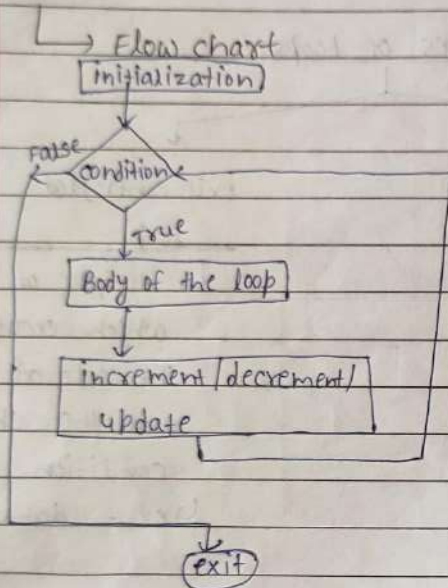 Flow chart
initialization
False
condition
True
Body of the loop
increment/decrement/
update
exit